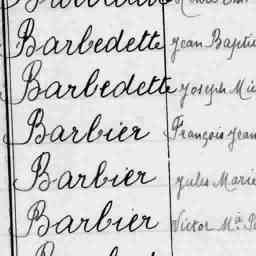 Barbedette Jean Baptis
Barbedette Joseph
Barbier François Jean
Barbier Jules Marie
Barbier Victor Mª